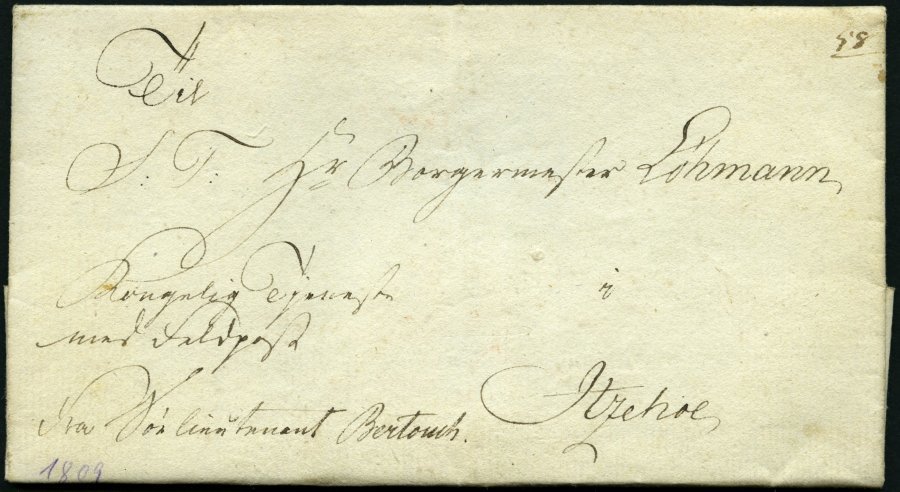 58
Til
S. T. Hr Borgermester Löhmann
Kongelig Tjeneste i
med Feldpost
Fra Söelieutenant Bertouch. Itzehoe
1809